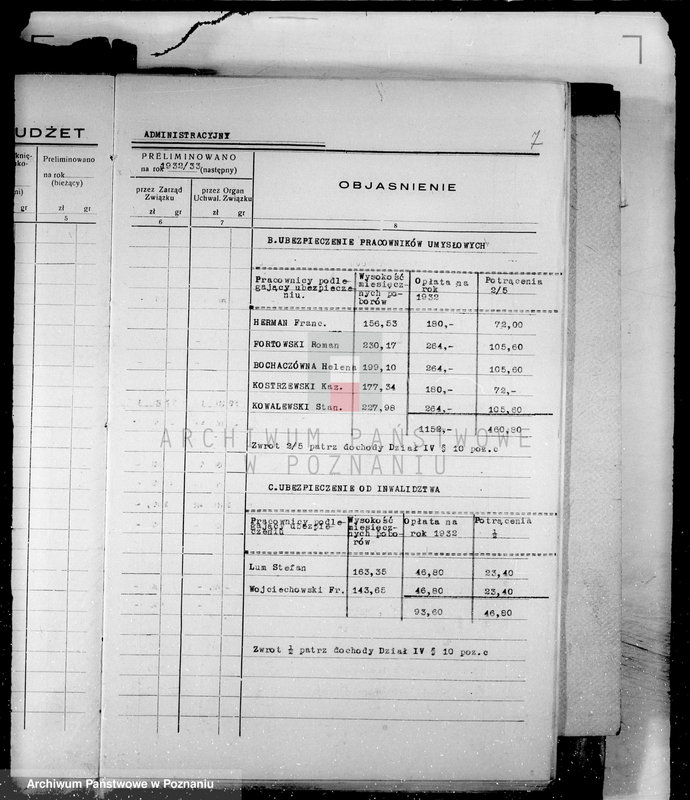 UDŻET
Preliminowano
na rok
(bieżący)
ni)
gr zł gr
5
ADMINISTRACYJNY
7
PRELIMINOWANO
na rok 1932/33 (następny)
przez Zarząd
Związku
przez Organ
Uchwał. Związku
zł gr zł gr
6 7
OBJASNIENIE
8
B.UBEZPIECZENIE PRACOWNIKÓW UMYSŁOWYCH
Pracownicy podle
gający ubezpiecze
niu.
Wysokość
miesięcz-
nych po-
borów
Opłata na
rok
1932
Potrącenia
2/5
HERMAN Franc. 156,53 180,- 72,00
FORTOWSKI Roman 230,17 264,- 105,60
BOCHACZÓWNA Helena 199,10 264,- 105,60
KOSTRZEWSKI Kaz. 177,34 180,- 72,-
KOWALEWSKI Stan. 227,98 264,- 105,60
1152,- 460,80
ARCHIWUM PAŃSTWOWE
W POZNANIU
Zwrot 2/5 patrz dochody Dział IV § 10 poz.c
C.UBEZPIECZENIE OD INWALIDZTWA
Pracownicy podle-
gający ubezpie-
czeniu
Wysokość
miesięcz-
nych pobo-
rów
Opłata na
rok 1932
Potrącenia
½
Lum Stefan 163,35 46,80 23,40
Wojciechowski Fr. 143,65 46,80 23,40
93,60 46,80
Zwrot ½ patrz dochody Dział IV § 10 poz.c
Archiwum Państwowe w Poznaniu